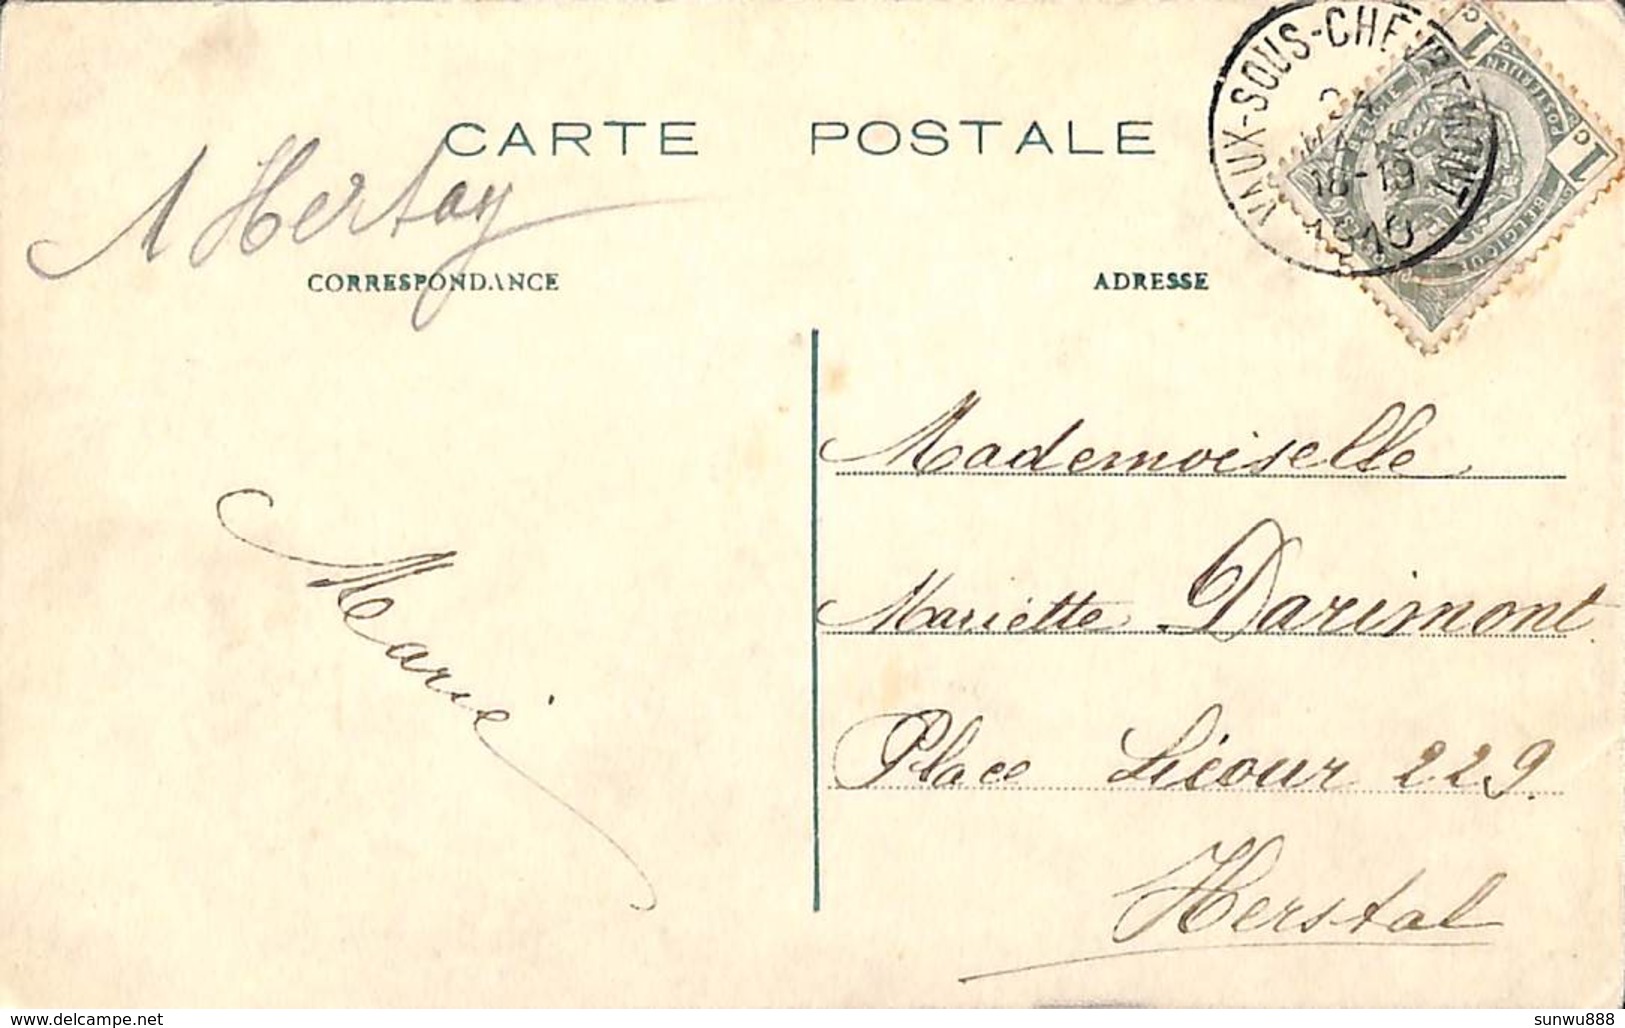 CARTE POSTALE
A Hertay
CORRESPONDANCE
ADRESSE
VAUX-SOUS-CHÈVREMONT
18-19
1910
BELGIE
BELGIQUE
POSTERIJEN
1c
1c
Mademoiselle
Mariette Darimont
Place Licour 229.
Herstal
Marie
www.delcampe.net
sunwu888